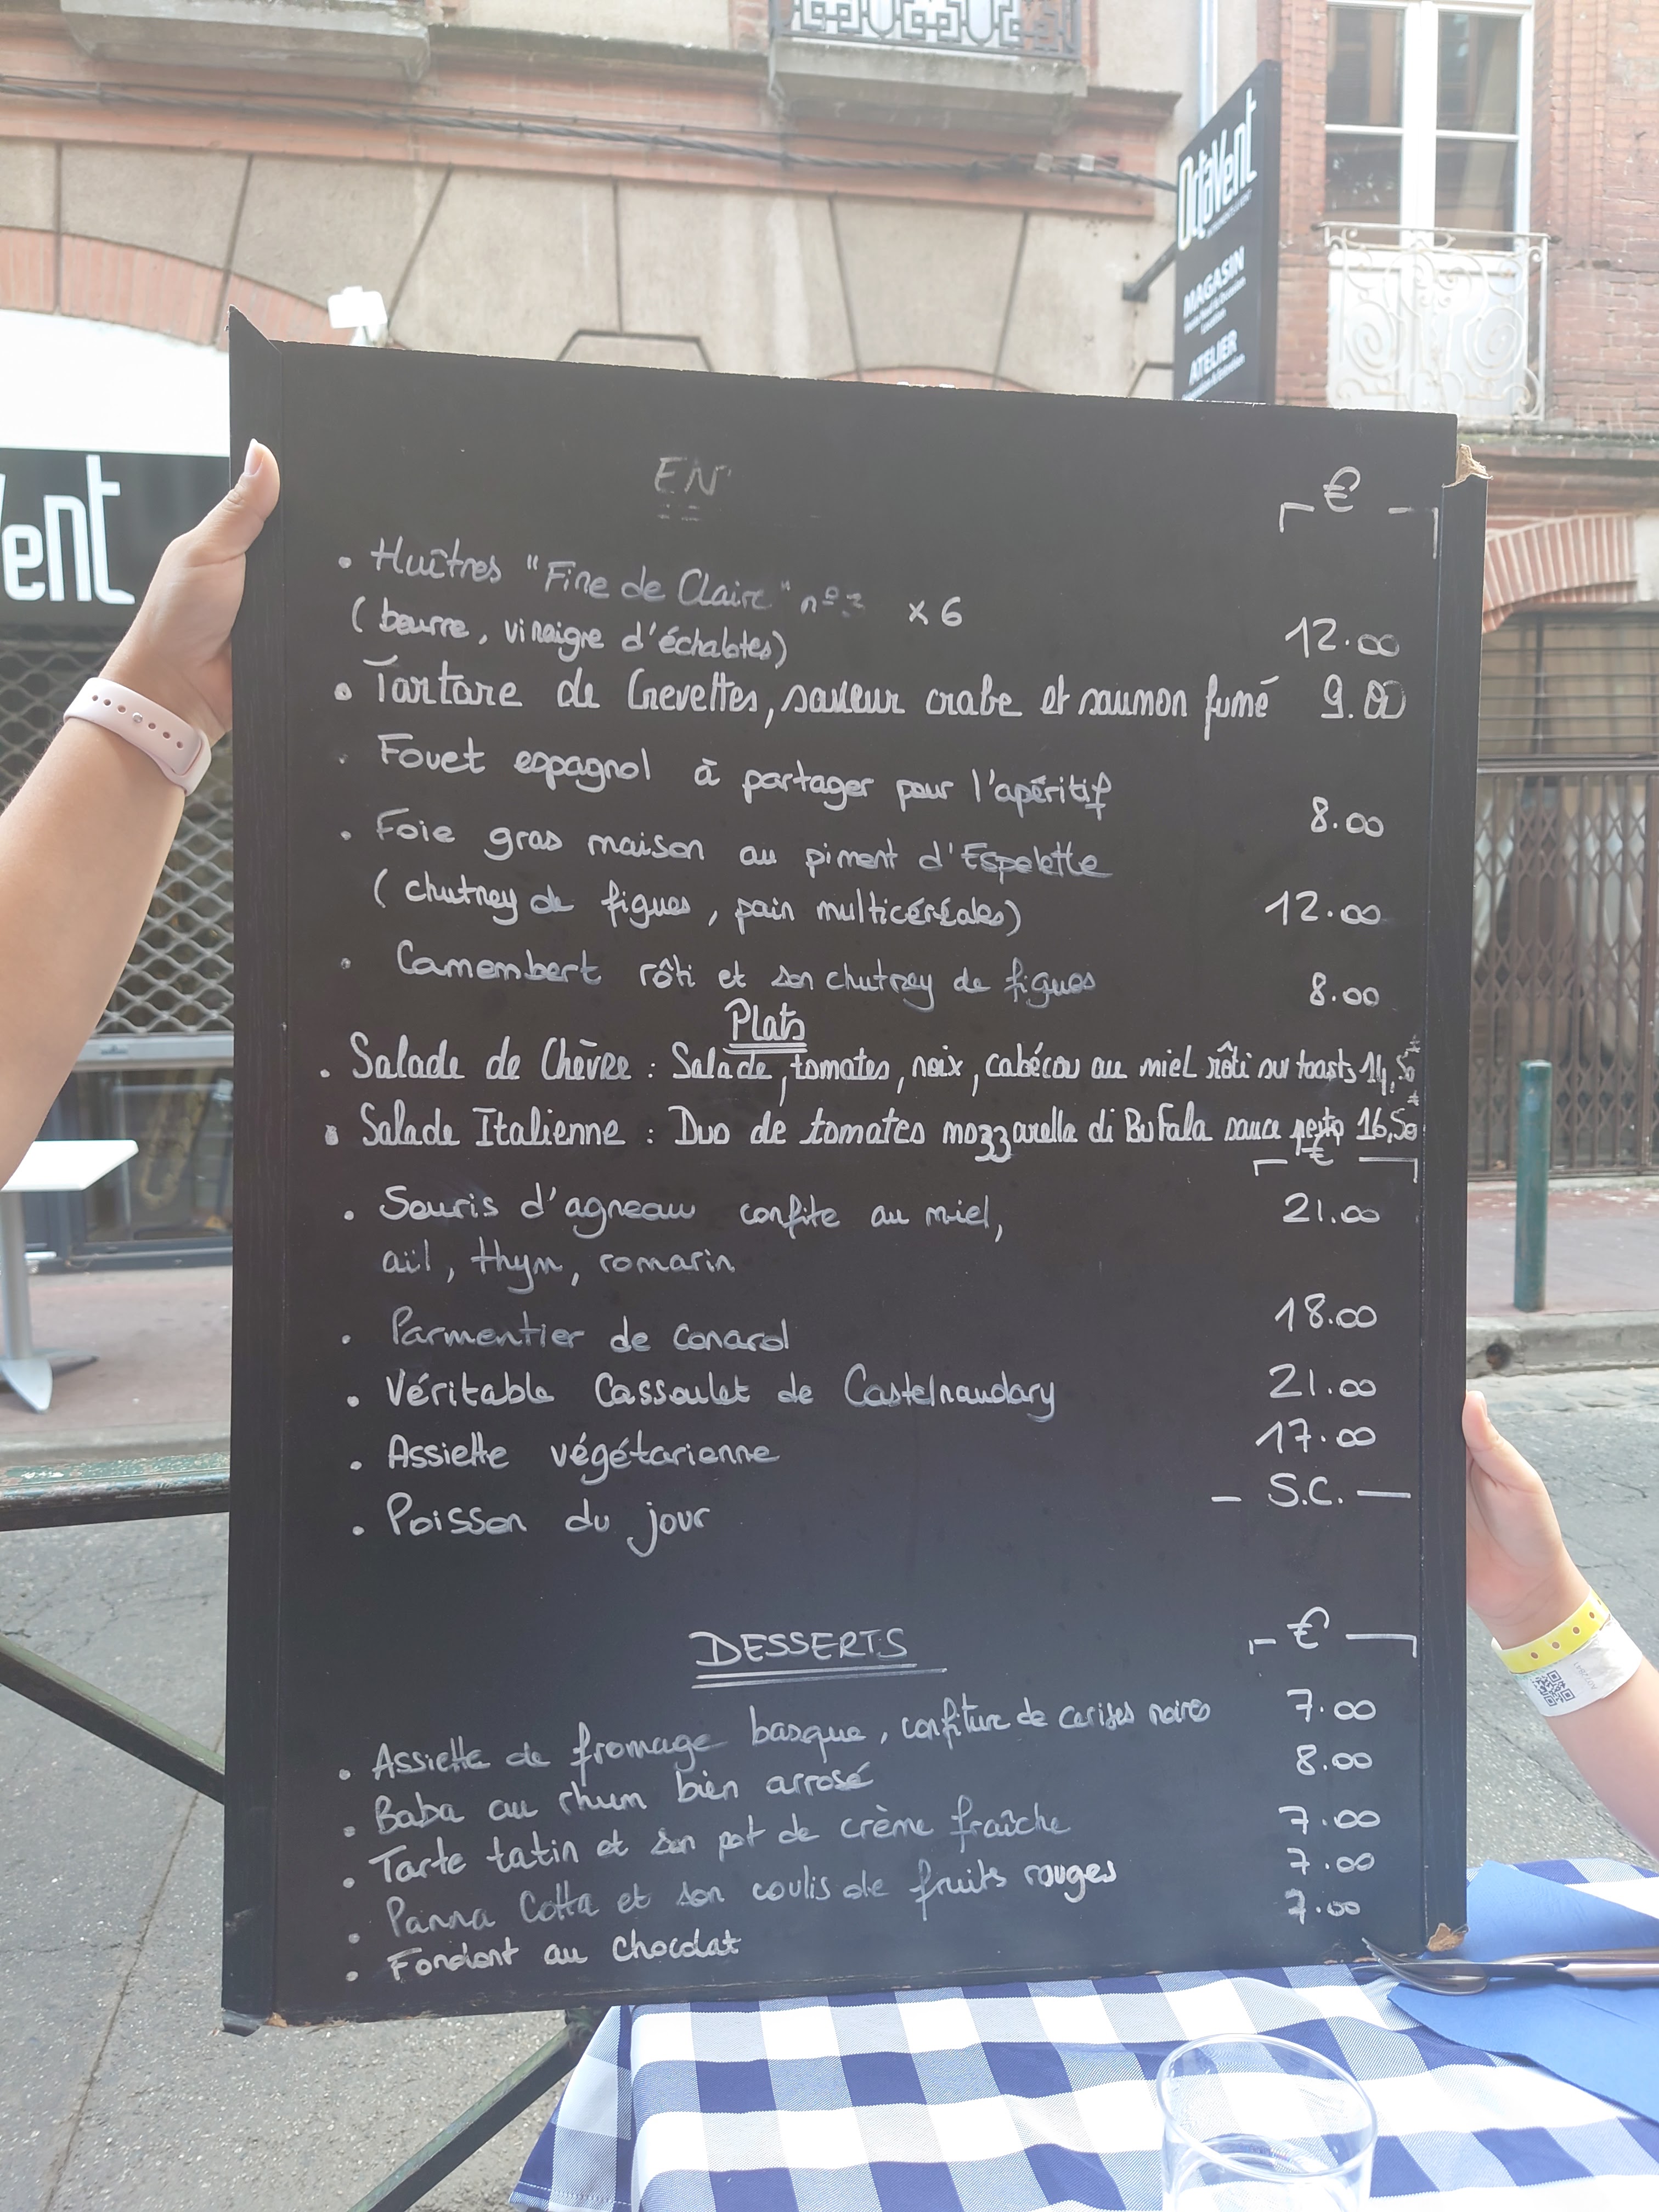 OctaVent
MAGASIN
ATELIER
Vent
EN
€
• Huîtres "Fine de Claire" nº3 x 6
(beurre, vinaigre d'échalotes) 12.00
• Tartare de Crevettes, saveur crabe et saumon fumé 9.00
• Fouet espagnol à partager pour l'apéritif 8.00
• Foie gras maison au piment d'Espelette
(chutney de figues, pain multicéréales) 12.00
• Camembert rôti et son chutney de figues 8.00
Plats
• Salade de Chèvre : Salade, tomates, noix, cabécou au miel rôti sur toasts 14,50
• Salade Italienne : Duo de tomates mozzarella di Bufala sauce pesto 16,50
€
• Souris d'agneau confite au miel, 21.00
ail, thym, romarin
• Parmentier de canard 18.00
• Véritable Cassoulet de Castelnaudary 21.00
• Assiette végétarienne 17.00
• Poisson du jour – S.C. –
DESSERTS €
• Assiette de fromage basque, confiture de cerises noires 7.00
• Baba au rhum bien arrosé 8.00
• Tarte tatin et son pot de crème fraîche 7.00
• Panna Cotta et son coulis de fruits rouges 7.00
• Fondant au chocolat 7.00